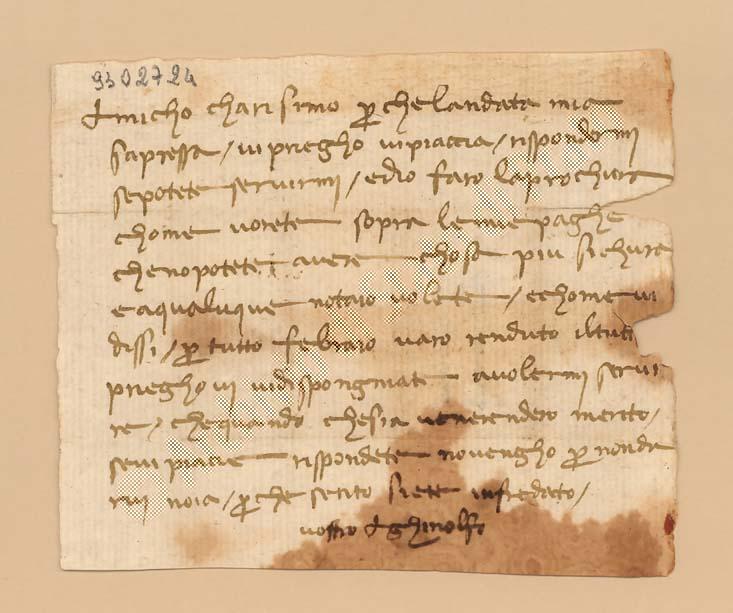 9302724
Amicho charisimo p che landata mia
sapressa / vi priegho vi piaccia / rispondermi
se potete servirmi / ed io faro la prochura
chome vorete sopra le mie paghe
che no potete avere chosa piu sichura
e a qualuque notaio volete / e chome vi
dissi / p tutto febraio varo renduto il tuto
prieghovi vi dispongniate a volermi servi
re / che quando che sia ve ne rendero merito /
se vi piacie rispondete no vengho p non da
rvi noia / p che sento siete infredato /
vostro Aghinolfo